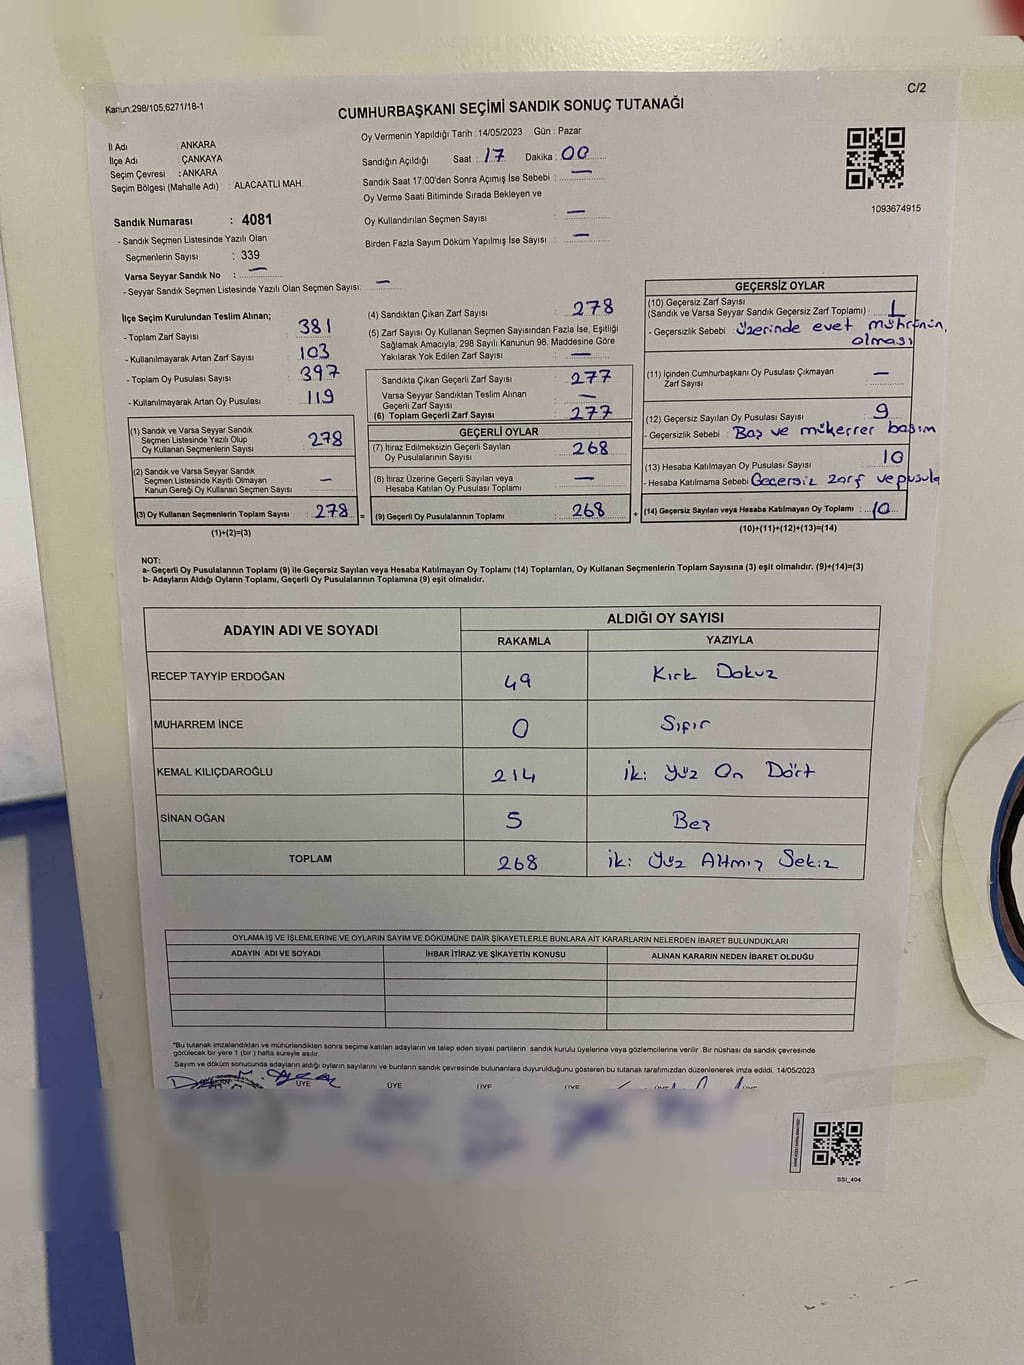 C/2
Kanun:298/105;6271/18-1
CUMHURBAŞKANI SEÇİMİ SANDIK SONUÇ TUTANAĞI
İl Adı : ANKARA
İlçe Adı : ÇANKAYA
Seçim Çevresi : ANKARA
Seçim Bölgesi (Mahalle Adı) : ALACAATLI MAH.
Oy Vermenin Yapıldığı Tarih : 14/05/2023 Gün : Pazar
Sandığın Açıldığı Saat : 17 Dakika : 00
Sandık Saat 17:00'den Sonra Açımış İse Sebebi : —
Oy Verme Saati Bitiminde Sırada Bekleyen ve
Oy Kullandırılan Seçmen Sayısı : —
Birden Fazla Sayım Döküm Yapılmış İse Sayısı : —
1093674915
Sandık Numarası : 4081
- Sandık Seçmen Listesinde Yazılı Olan
Seçmenlerin Sayısı : 339
Varsa Seyyar Sandık No : —
- Seyyar Sandık Seçmen Listesinde Yazılı Olan Seçmen Sayısı: —
İlçe Seçim Kurulundan Teslim Alınan;
- Toplam Zarf Sayısı : 381
- Kullanılmayarak Artan Zarf Sayısı : 103
- Toplam Oy Pusulası Sayısı : 397
- Kullanılmayarak Artan Oy Pusulası : 119
(1) Sandık ve Varsa Seyyar Sandık
Seçmen Listesinde Yazılı Olup
Oy Kullanan Seçmenlerin Sayısı : 278
(2) Sandık ve Varsa Seyyar Sandık
Seçmen Listesinde Kayıtlı Olmayan
Kanun Gereği Oy Kullanan Seçmen Sayısı : —
(3) Oy Kullanan Seçmenlerin Toplam Sayısı : 278 =
(1)+(2)=(3)
(4) Sandıktan Çıkan Zarf Sayısı : 278
(5) Zarf Sayısı Oy Kullanan Seçmen Sayısından Fazla İse, Eşitliği
Sağlamak Amacıyla; 298 Sayılı Kanunun 98. Maddesine Göre
Yakılarak Yok Edilen Zarf Sayısı : —
Sandıkta Çıkan Geçerli Zarf Sayısı : 277
Varsa Seyyar Sandıktan Teslim Alınan
Geçerli Zarf Sayısı : —
(6) Toplam Geçerli Zarf Sayısı : 277
GEÇERLİ OYLAR
(7) İtiraz Edilmeksizin Geçerli Sayılan
Oy Pusulalarının Sayısı : 268
(8) İtiraz Üzerine Geçerli Sayılan veya
Hesaba Katılan Oy Pusulası Toplamı : —
(9) Geçerli Oy Pusulalarının Toplamı : 268 +
GEÇERSİZ OYLAR
(10) Geçersiz Zarf Sayısı
(Sandık ve Varsa Seyyar Sandık Geçersiz Zarf Toplamı) : 1
- Geçersizlik Sebebi : Üzerinde evet mührünün
olması
(11) İçinden Cumhurbaşkanı Oy Pusulası Çıkmayan
Zarf Sayısı : —
(12) Geçersiz Sayılan Oy Pusulası Sayısı : 9
- Geçersizlik Sebebi : Boş ve mükerrer basım
(13) Hesaba Katılmayan Oy Pusulası Sayısı : 10
- Hesaba Katılmama Sebebi : Geçersiz zarf ve pusula
(14) Geçersiz Sayılan veya Hesaba Katılmayan Oy Toplamı : 10
(10)+(11)+(12)+(13)=(14)
NOT:
a- Geçerli Oy Pusulalarının Toplamı (9) ile Geçersiz Sayılan veya Hesaba Katılmayan Oy Toplamı (14) Toplamları, Oy Kullanan Seçmenlerin Toplam Sayısına (3) eşit olmalıdır. (9)+(14)=(3)
b- Adayların Aldığı Oyların Toplamı, Geçerli Oy Pusulalarının Toplamına (9) eşit olmalıdır.
ADAYIN ADI VE SOYADI ALDIĞI OY SAYISI
RAKAMLA YAZIYLA
RECEP TAYYİP ERDOĞAN 49 Kırk Dokuz
MUHARREM İNCE 0 Sıfır
KEMAL KILIÇDAROĞLU 214 iki yüz On Dört
SİNAN OĞAN 5 Beş
TOPLAM 268 iki yüz Altmış Sekiz
OYLAMA İŞ VE İŞLEMLERİNE VE OYLARIN SAYIM VE DÖKÜMÜNE DAİR ŞİKAYETLERLE BUNLARA AİT KARARLARIN NELERDEN İBARET BULUNDUKLARI
ADAYIN ADI VE SOYADI İHBAR İTİRAZ VE ŞİKAYETİN KONUSU ALINAN KARARIN NEDEN İBARET OLDUĞU
*Bu tutanak imzalandıktan ve mühürlendikten sonra seçime katılan adayların ve talep eden siyasi partilerin sandık kurulu üyelerine veya gözlemcilerine verilir. Bir nüshası da sandık çevresinde
görülecek bir yere 1 (bir) hafta süreyle asılır.
Sayım ve döküm sonucunda adayların aldığı oyların sayılarını ve bunların sandık çevresinde bulunanlara duyurulduğunu gösteren bu tutanak tarafımızdan düzenlenerek imza edildi. 14/05/2023
ÜYE ÜYE ÜYE ÜYE
SSI_404